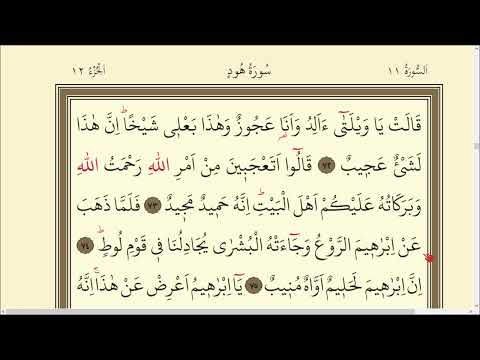 اَلسُّورَةُ ١١
سُورَةُ هُودٍ
اَلْجُزْءُ ١٢
قَالَتْ يَا وَيْلَتٰٓى ءَاَلِدُ وَاَنَا۬ عَجُوزٌ وَهٰذَا بَعْل۪ي شَيْخًاۜ اِنَّ هٰذَا
لَشَيْءٌ عَج۪يبٌ ﴿٧٢﴾ قَالُٓوا اَتَعْجَب۪ينَ مِنْ اَمْرِ اللّٰهِ رَحْمَتُ اللّٰهِ
وَبَرَكَاتُهُ عَلَيْكُمْ اَهْلَ الْبَيْتِۜ اِنَّهُ حَم۪يدٌ مَج۪يدٌ ﴿٧٣﴾ فَلَمَّا ذَهَبَ
عَنْ اِبْرٰه۪يمَ الرَّوْعُ وَجَٓاءَتْهُ الْبُشْرٰى يُجَادِلُنَا ف۪ي قَوْمِ لُوطٍۜ ﴿٧٤﴾
اِنَّ اِبْرٰه۪يمَ لَحَل۪يمٌ اَوَّاهٌ مُن۪يبٌ ﴿٧٥﴾ يَٓا اِبْرٰه۪يمُ اَعْرِضْ عَنْ هٰذَاۚ اِنَّهُ